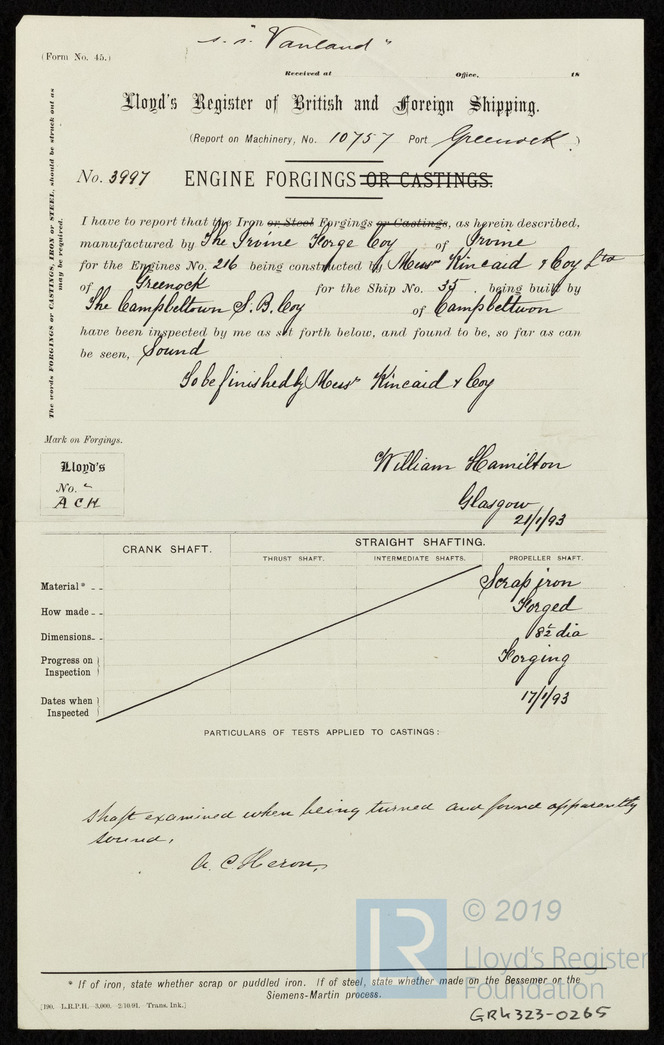 s.s. "Vanland"
(Form No. 45.)
Received at Office, 18
Lloyd's Register of British and Foreign Shipping.
(Report on Machinery, No. 10757 Port Greenock.)
No. 3997 ENGINE FORGINGS OR CASTINGS.
The words FORGINGS or CASTINGS, IRON or STEEL, should be struck out as may be required.
I have to report that the Iron or Steel Forgings or Castings, as herein described,
manufactured by The Irvine Forge Coy of Irvine
for the Engines No. 216 being constructed by Messrs Kincaid & Coy Ltd
of Greenock for the Ship No. 35 being built by
The Campbeltown S. B. Coy of Campbeltown
have been inspected by me as set forth below, and found to be, so far as can
be seen, Sound
To be finished by Messrs Kincaid & Coy
Mark on Forgings.
Lloyd's
No.
A C H
William Hamilton
Glasgow
21/1/93
CRANK SHAFT. STRAIGHT SHAFTING.
THRUST SHAFT. INTERMEDIATE SHAFTS. PROPELLER SHAFT.
Material* Scrap iron
How made Forged
Dimensions 8½ dia
Progress on Inspection Forging
Dates when Inspected 17/1/93
PARTICULARS OF TESTS APPLIED TO CASTINGS:
Shaft examined when being turned and found apparently
sound.
A. C. Heron,
© 2019
LR
Lloyd's Register
Foundation
* If of iron, state whether scrap or puddled iron. If of steel, state whether made on the Bessemer or the
Siemens-Martin process.
[190. L.R.P.H. 3,000. 2/10/91. Trans. Ink.]
GRK323-0265